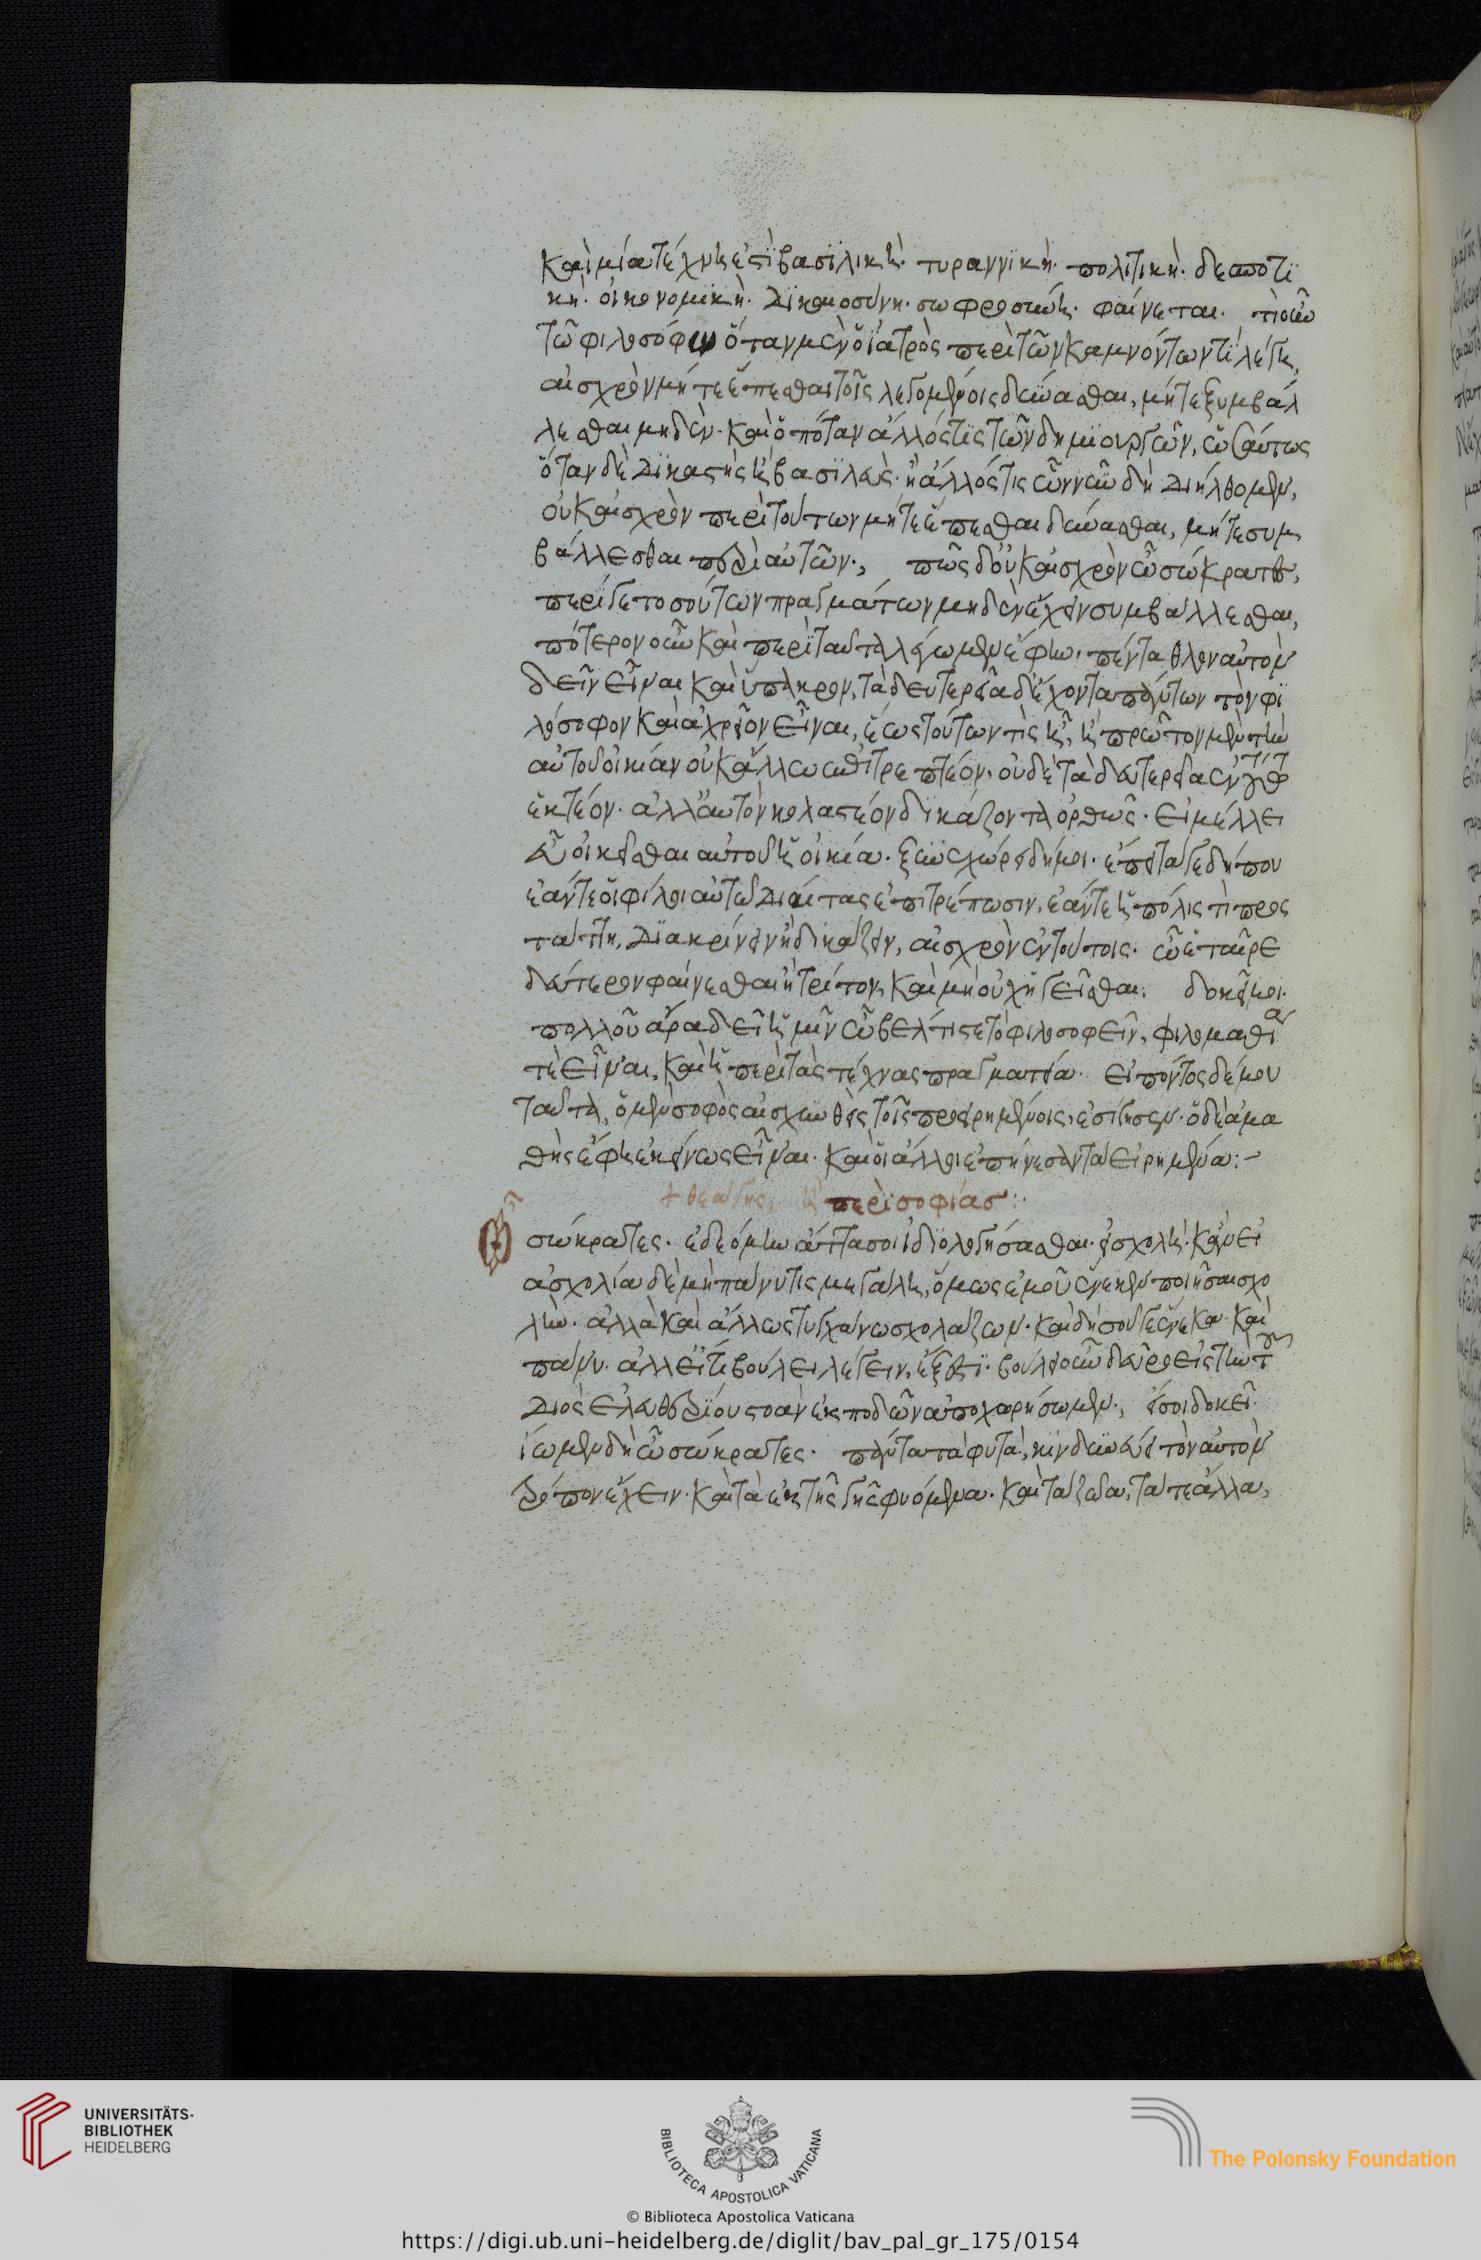 καὶ μία τέχνη ἐστὶ βασϊλικὴ· τυραννϊκὴ· πολιτικὴ· δεσποτϊ
κὴ· οἰκονομϊκὴ· δϊκαιοσύνη· σωφροσύνη· φαίνεται· τί οὖν
τῶ φιλοσόφω ὅταν μὲν ὁ ἰατρὸς περὶ τῶν καμνόντων τί λέγη,
αἰσχρὸν μήτε ἕπεσθαι τοῖς λεγομένοις δύνασθαι, μήτε ξυμβάλ
λεσθαι μηδὲν· καὶ ὁπόταν ἄλλός τϊς τῶν δημϊουργῶν, ὡσαύτως
ὅταν δὲ δϊκαστὴς ἢ βασϊλεὺς· ἢ ἄλλός τις ὧν νῦν δὴ διήλθομεν,
οὐκ αἰσχρὸν περὶ τούτων μήτε ἕπεσθαι δύνασθαι, μήτε συμ
βάλλεσθαι περὶ αὐτῶν., πῶς δ' οὐκ αἰσχρὸν ὦ σώκρατες,
περί γε τοσούτων πραγμάτων μηδὲν ἔχειν συμβάλλεσθαι,
πότερον οὖν καὶ περὶ ταῦτα λέγωμεν ἔφην, πένταθλον αὐτὸν
δεῖν εἶναι καὶ ὕπακρον, τὰ δευτερεῖα δὲ ἔχοντα πάντων τὸν φϊ
λόσοφον καὶ ἀχρεῖον εἶναι, ἕως τούτων τὶς ἦ, ἢ πρῶτον μὲν τὴν
αὑτοῦ οἰκίαν οὐκ ἄλλω ἐπιτρεπτέον, οὐδὲ τὰ δευτερεῖα ἐν τούτω
ἑκτέον· ἀλλ' αὐτὸν κολαστέον δϊκάζοντα ὀρθῶς· εἰ μέλλει
εὖ οἰκεῖσθαι αὐτοῦ ἡ οἰκία· ξυνεχώρει δή μοι· ἔπειτά γε δήπου
ἐάν τε οἱ φίλοι αὐτῶ διαίτας ἐπιτρέπωσιν, ἐάν τε ἡ πόλις τὶ προς
τάττη, δϊακρίνειν ἢ δϊκάζειν, αἰσχρὸν ἐν τούτοις· ὦ ἑταῖρε
δεύτερον φαίνεσθαι ἢ τρίτον, καὶ μὴ οὐχ ἡγεῖσθαι. δοκεῖ μοι.
πολλοῦ ἄρα δεῖ ἡμῖν ὦ βέλτιστε τὸ φιλοσοφεῖν, φιλομαθία
τὲ εἶναι, καὶ ἡ περὶ τὰς τέχνας πραγματεία· εἰπόντος δέ μου
ταῦτα, ὁ μὲν σοφὸς αἰσχυνθεὶς τοῖς προειρημένοις, ἐσίγησεν· ὁ δὲ ἀμα
θὴς ἔφη ἐκείνως εἶναι· καὶ οἱ ἄλλοι ἐπήνεσαν τὰ εἰρημένα:–
+ θεάγης, ἢ περὶ σοφίας:·
Ὦ σώκρατες· ἐδεόμην ἄττα σοι ἰδϊολογήσασθαι· εἰ σχολή· κἂν εἰ
ἀσχολία δὲ μὴ πάνυ τις μεγάλη, ὅμως ἐμοῦ ἕνεκεν ποίησαι σχο
λὴν. ἀλλὰ καὶ ἄλλως τυγχάνω σχολάζων· καὶ δὴ σοῦ γε ἕνεκα καὶ
πάνυ· ἀλλ' εἴ τϊ βούλει λέγειν, ἔξεστϊ. βούλει οὖν δεῦρο εἰς τὴν τοῦ
διὸς ἐλευθερΐου στοὰν ἐκποδὼν ἀποχωρήσωμεν., εἴ σοι δοκεῖ.
ἴωμεν δὴ ὦ σώκρατες· πάντα τὰ φυτὰ, κϊνδυνεύει τὸν αὐτὸν
τρόπον ἔχειν· καὶ τὰ ἐκ τῆς γῆς φυόμενα· καὶ τὰ ζῶα, τά τε ἄλλα,
UNIVERSITÄTS-
BIBLIOTHEK
HEIDELBERG
BIBLIOTECA APOSTOLICA VATICANA
The Polonsky Foundation
© Biblioteca Apostolica Vaticana
https://digi.ub.uni-heidelberg.de/diglit/bav_pal_gr_175/0154